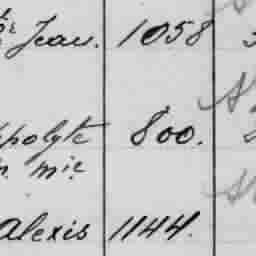 Jean. 1058
ppolyte 800.
n. mie.
Alexis 1144.